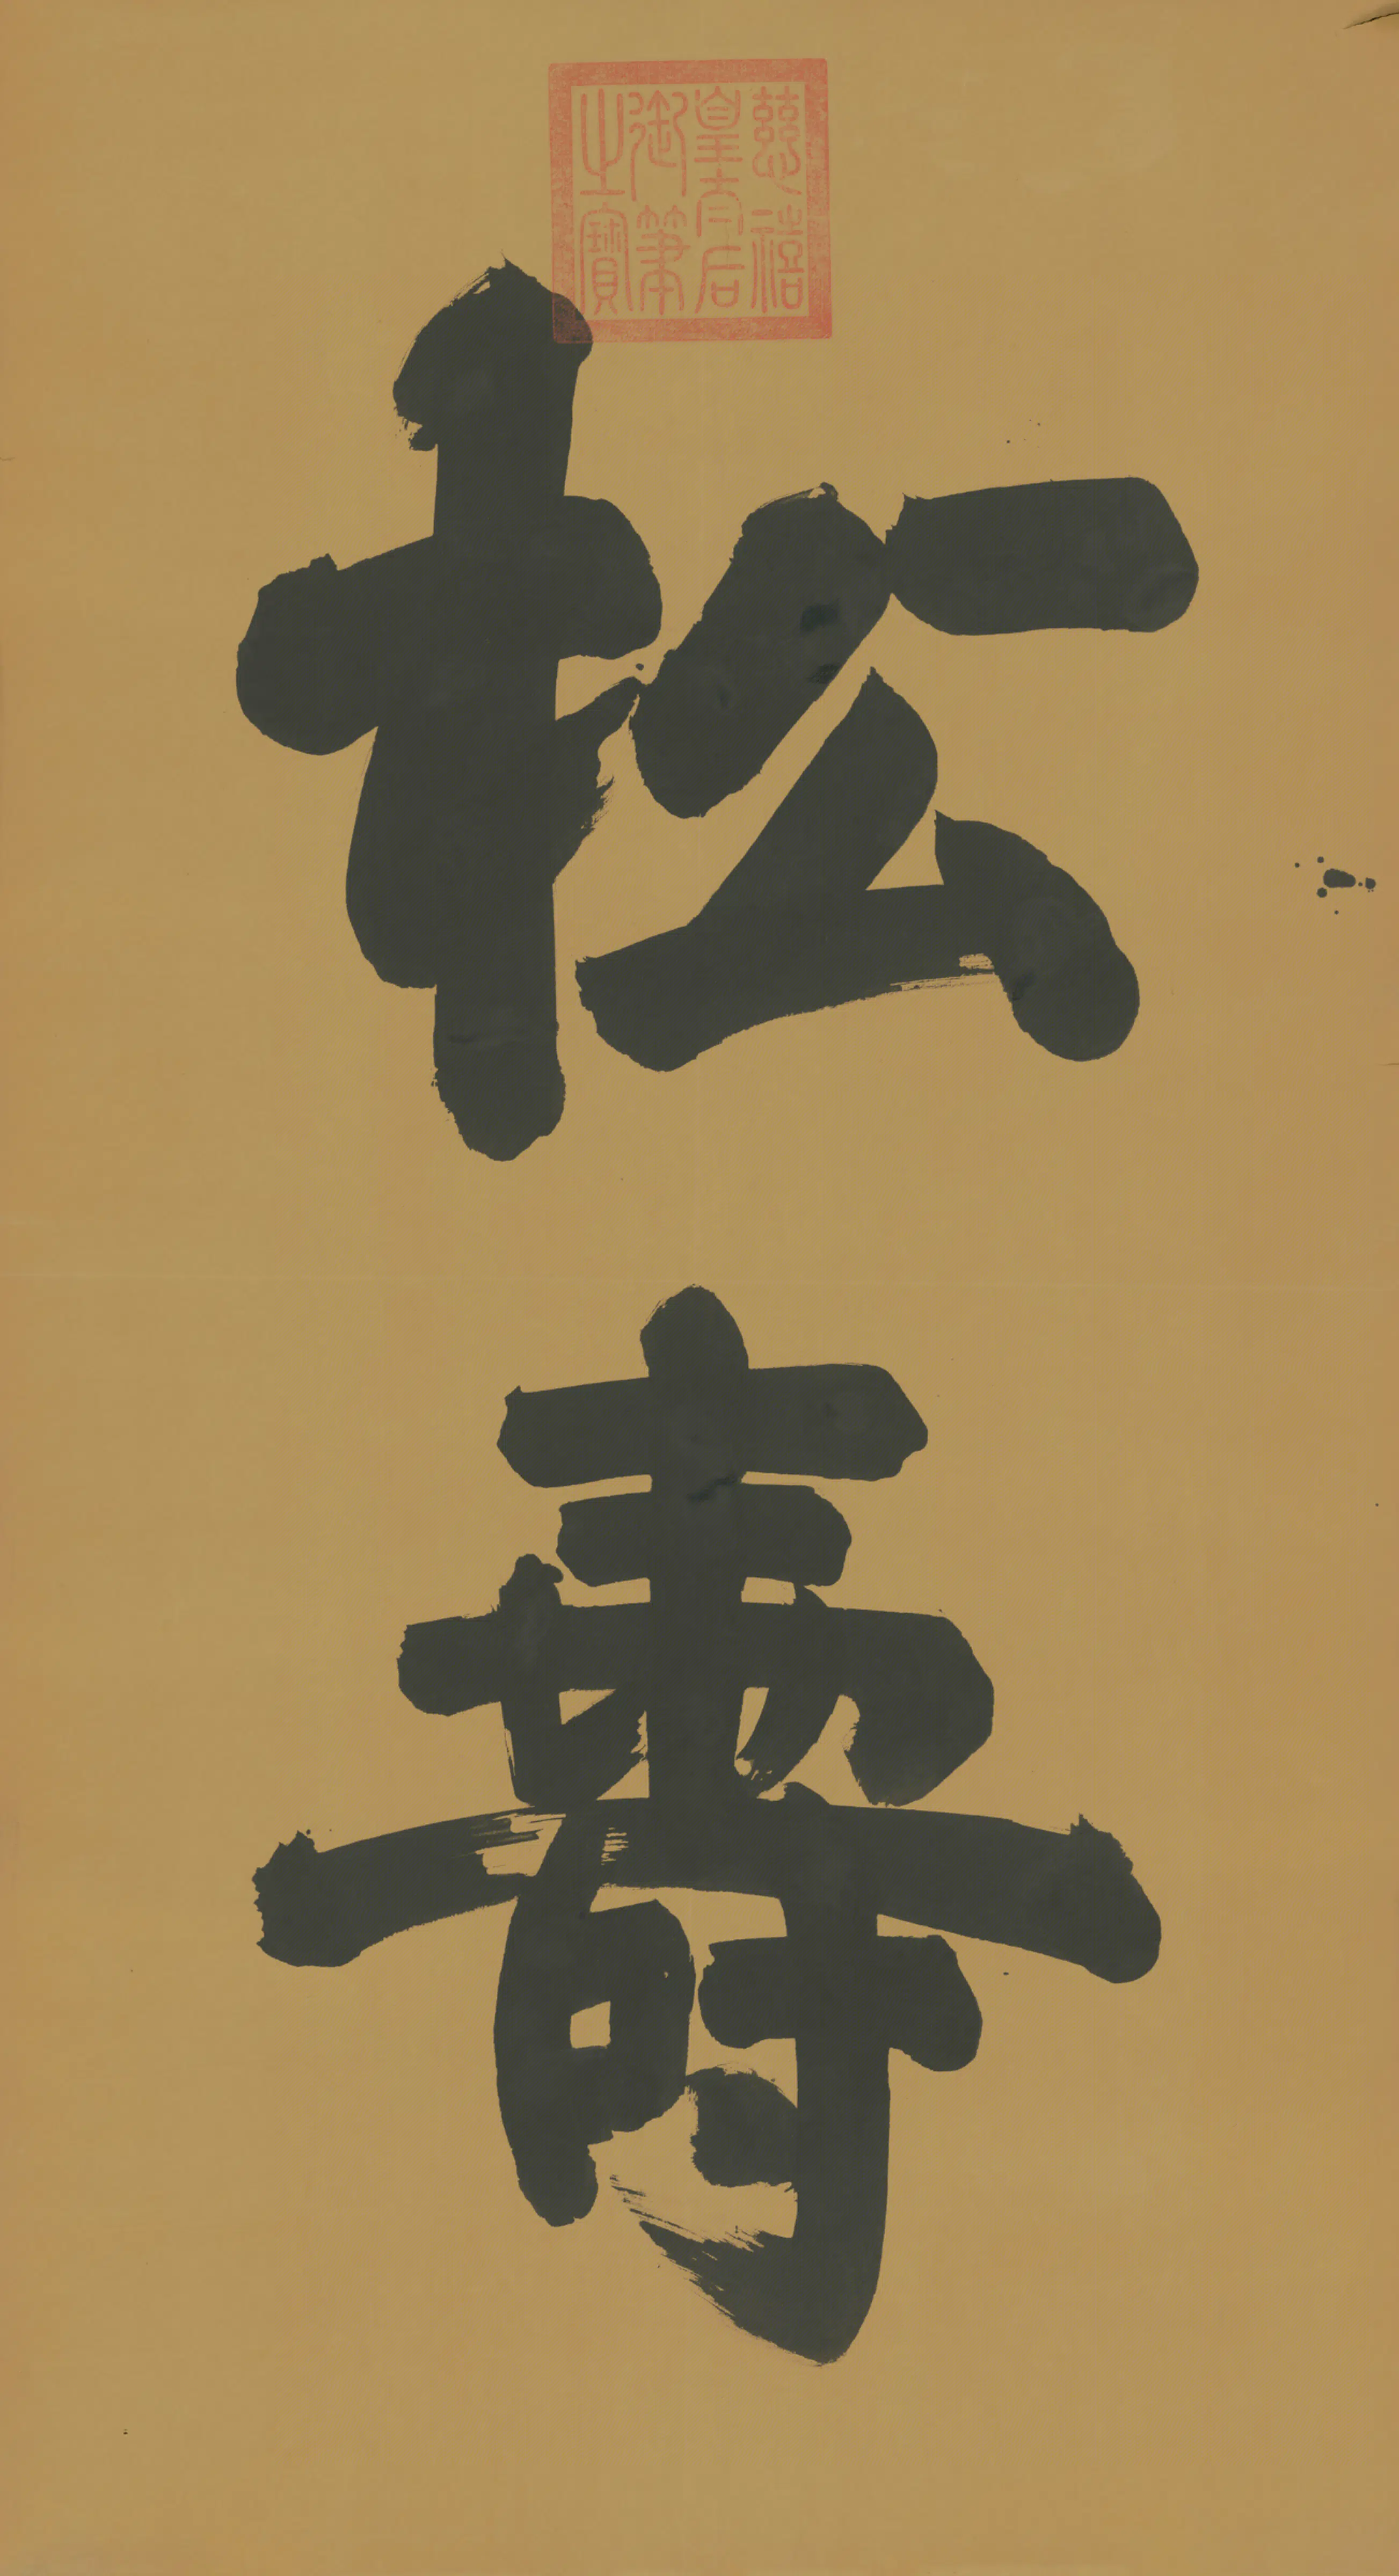 慈禧
皇太后
御筆
之寶
松壽